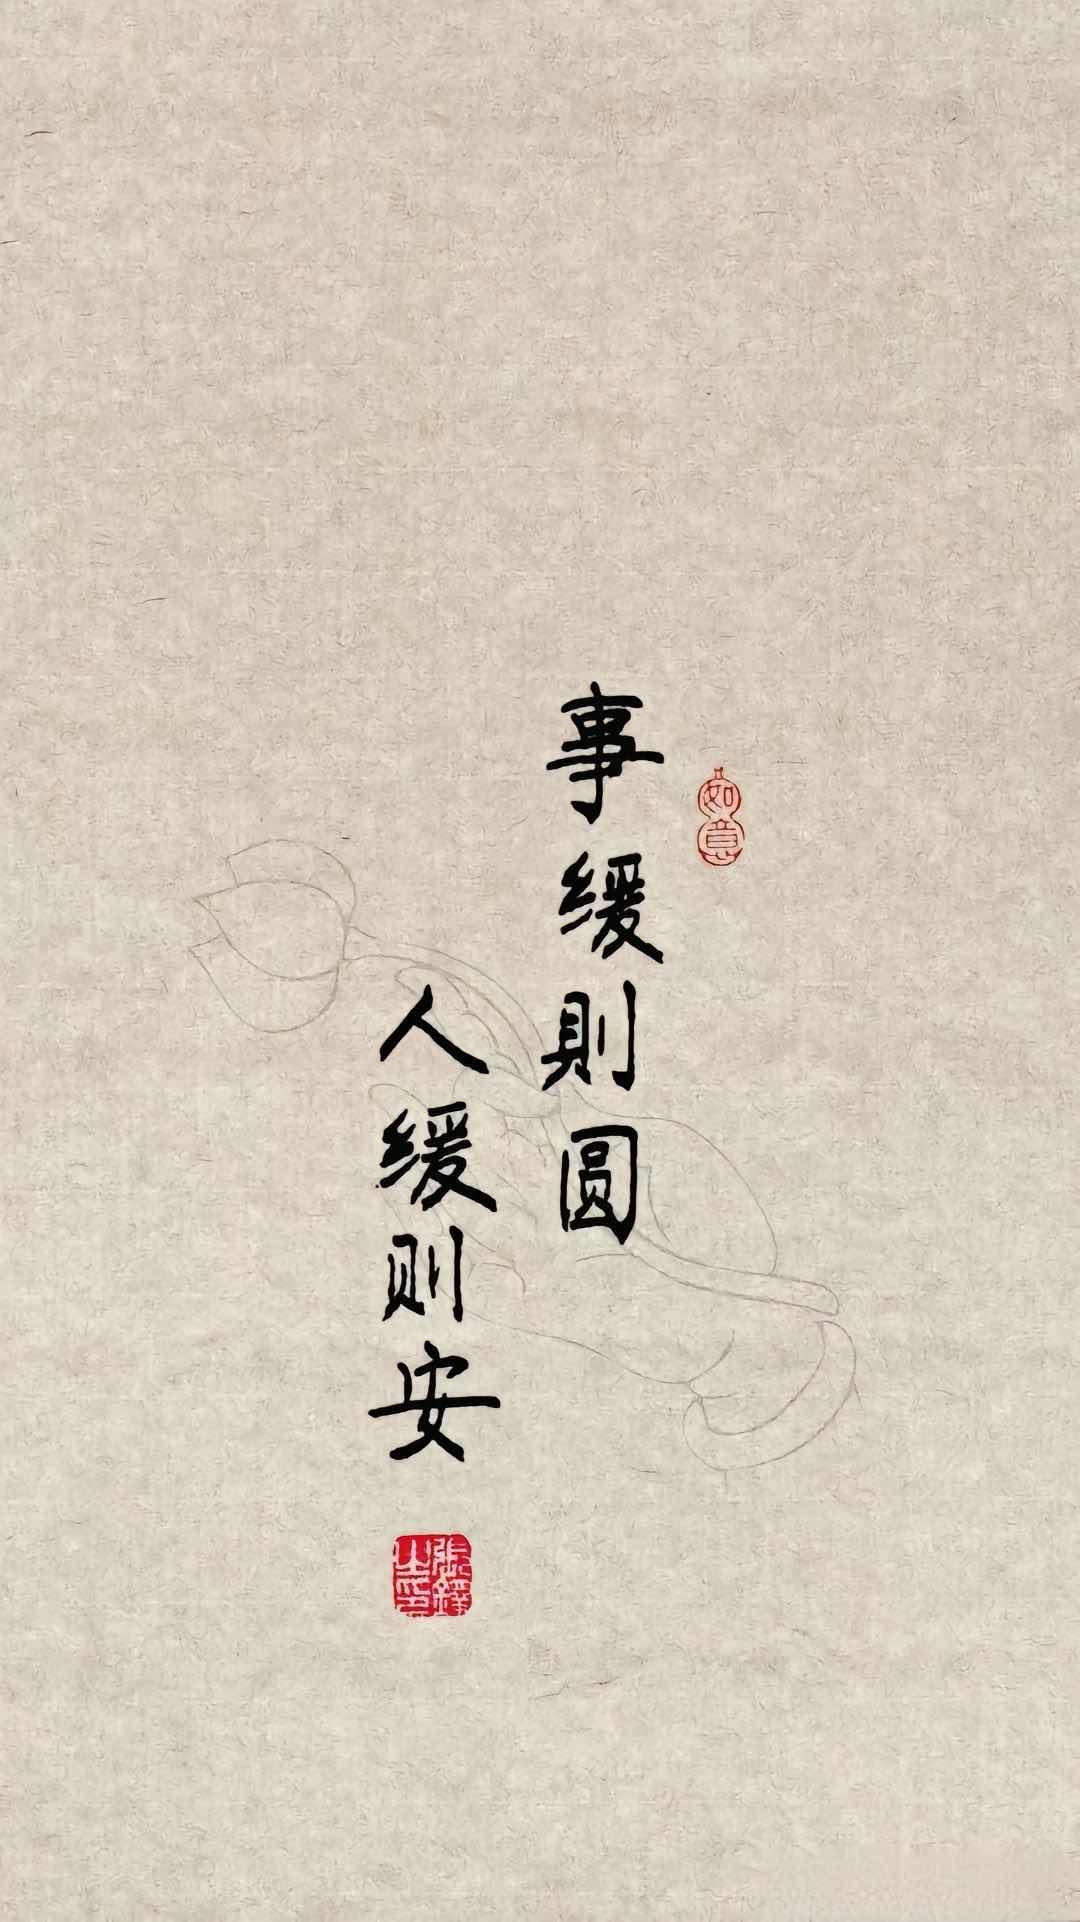 事缓則圆
如意
人缓则安